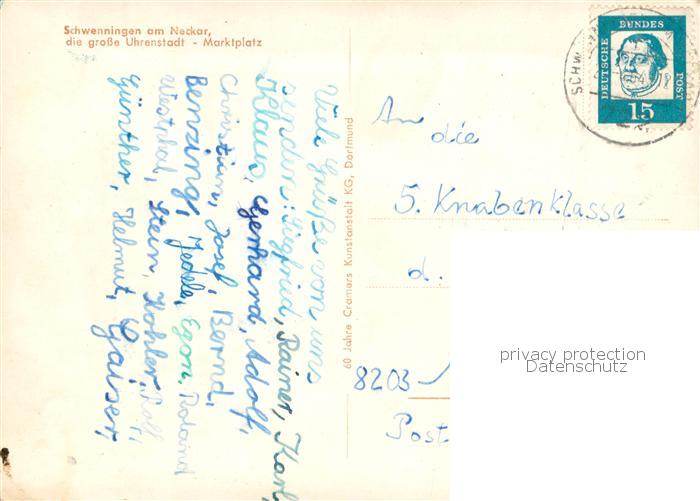 Schwenningen am Neckar,
die große Uhrenstadt - Marktplatz
Viele Grüße von uns
senden: Siegfried, Rainer, Karl,
Klaus, Gerhard, Adolf,
Christian, Josef, Bernd,
Benzing, Jedele, Egon, Roland
Westphal, Stein, Kohler, Rolf,
Günther, Helmut, Gaiser,
60 Jahre Cramers Kunstanstalt KG, Dortmund
DEUTSCHE BUNDES POST
15
SCHW
An
die
5. Knabenklasse
d.
8203
Post
privacy protection
Datenschutz